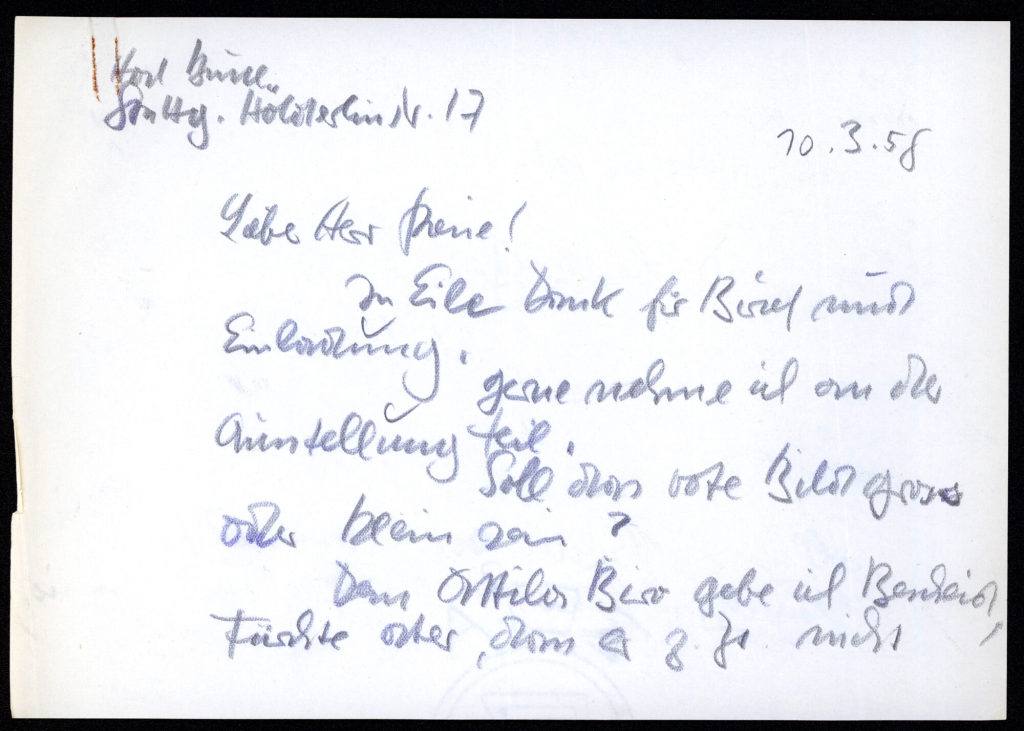 Stuttg. Hölderlinstr. 17
10.3.58
Lieber Herr Piene!
In Eile Dank für Brief und
Einladung.
Gerne nehme ich an der
Ausstellung teil.
Soll das rote Bild gross
oder klein sein?
Dem Attila Biro gebe ich Bescheid,
fürchte aber, dass er z. Zt. nicht